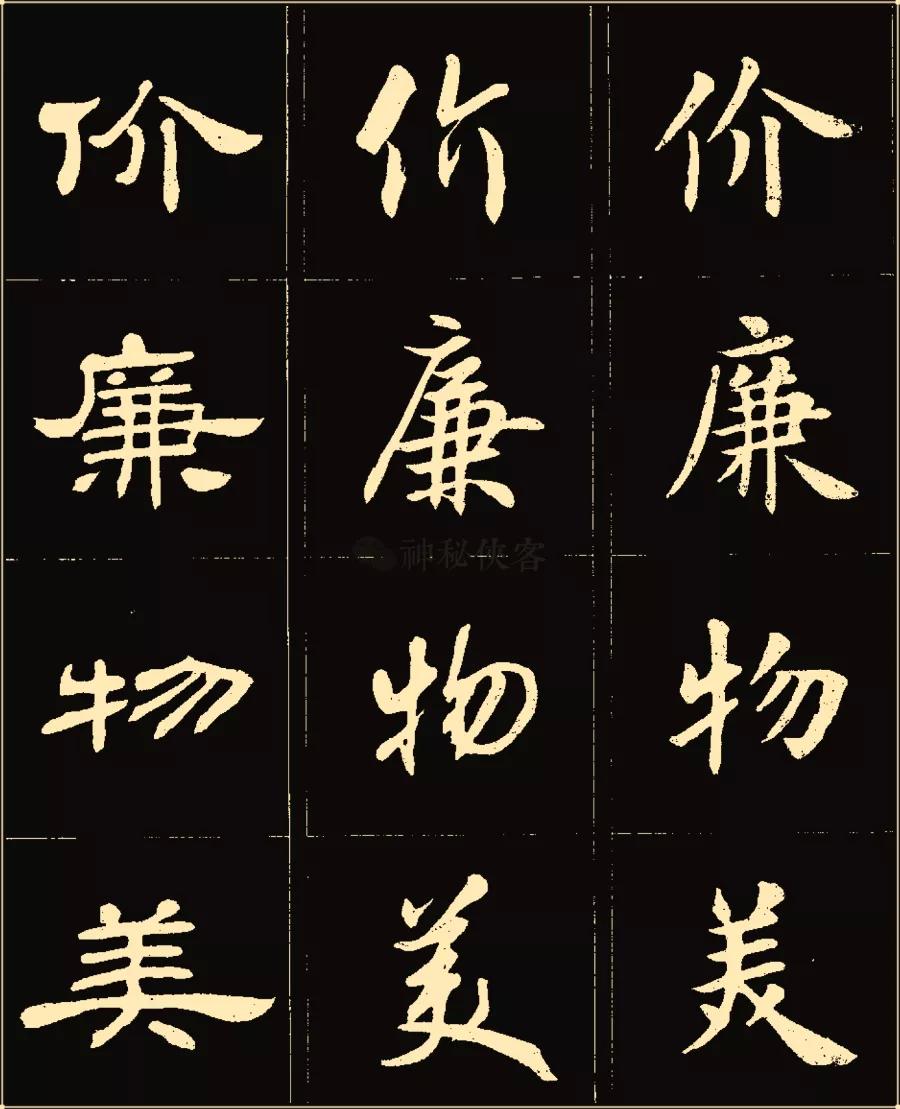 价 价 价
廉 廉 廉
神秘侠客
物 物 物
美 美 美